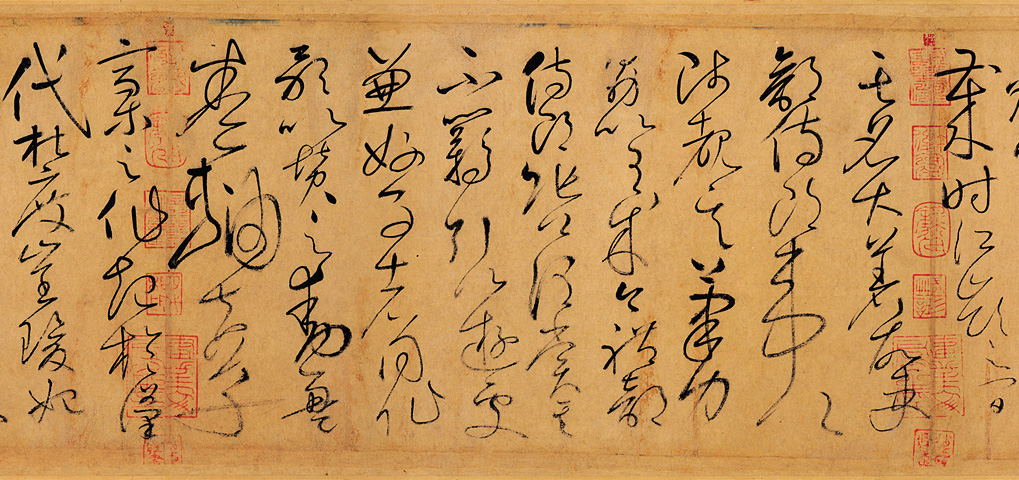 歲時江嶺之間
其名大著故吏
部侍郎韋公
陟睹其筆力
勗以有成今禮部
侍郎張公謂賞其
不羈引以遊處
兼好事者同作
歌以贊之動盈
卷軸夫草
稾之作起於漢
代杜度崔瑗始